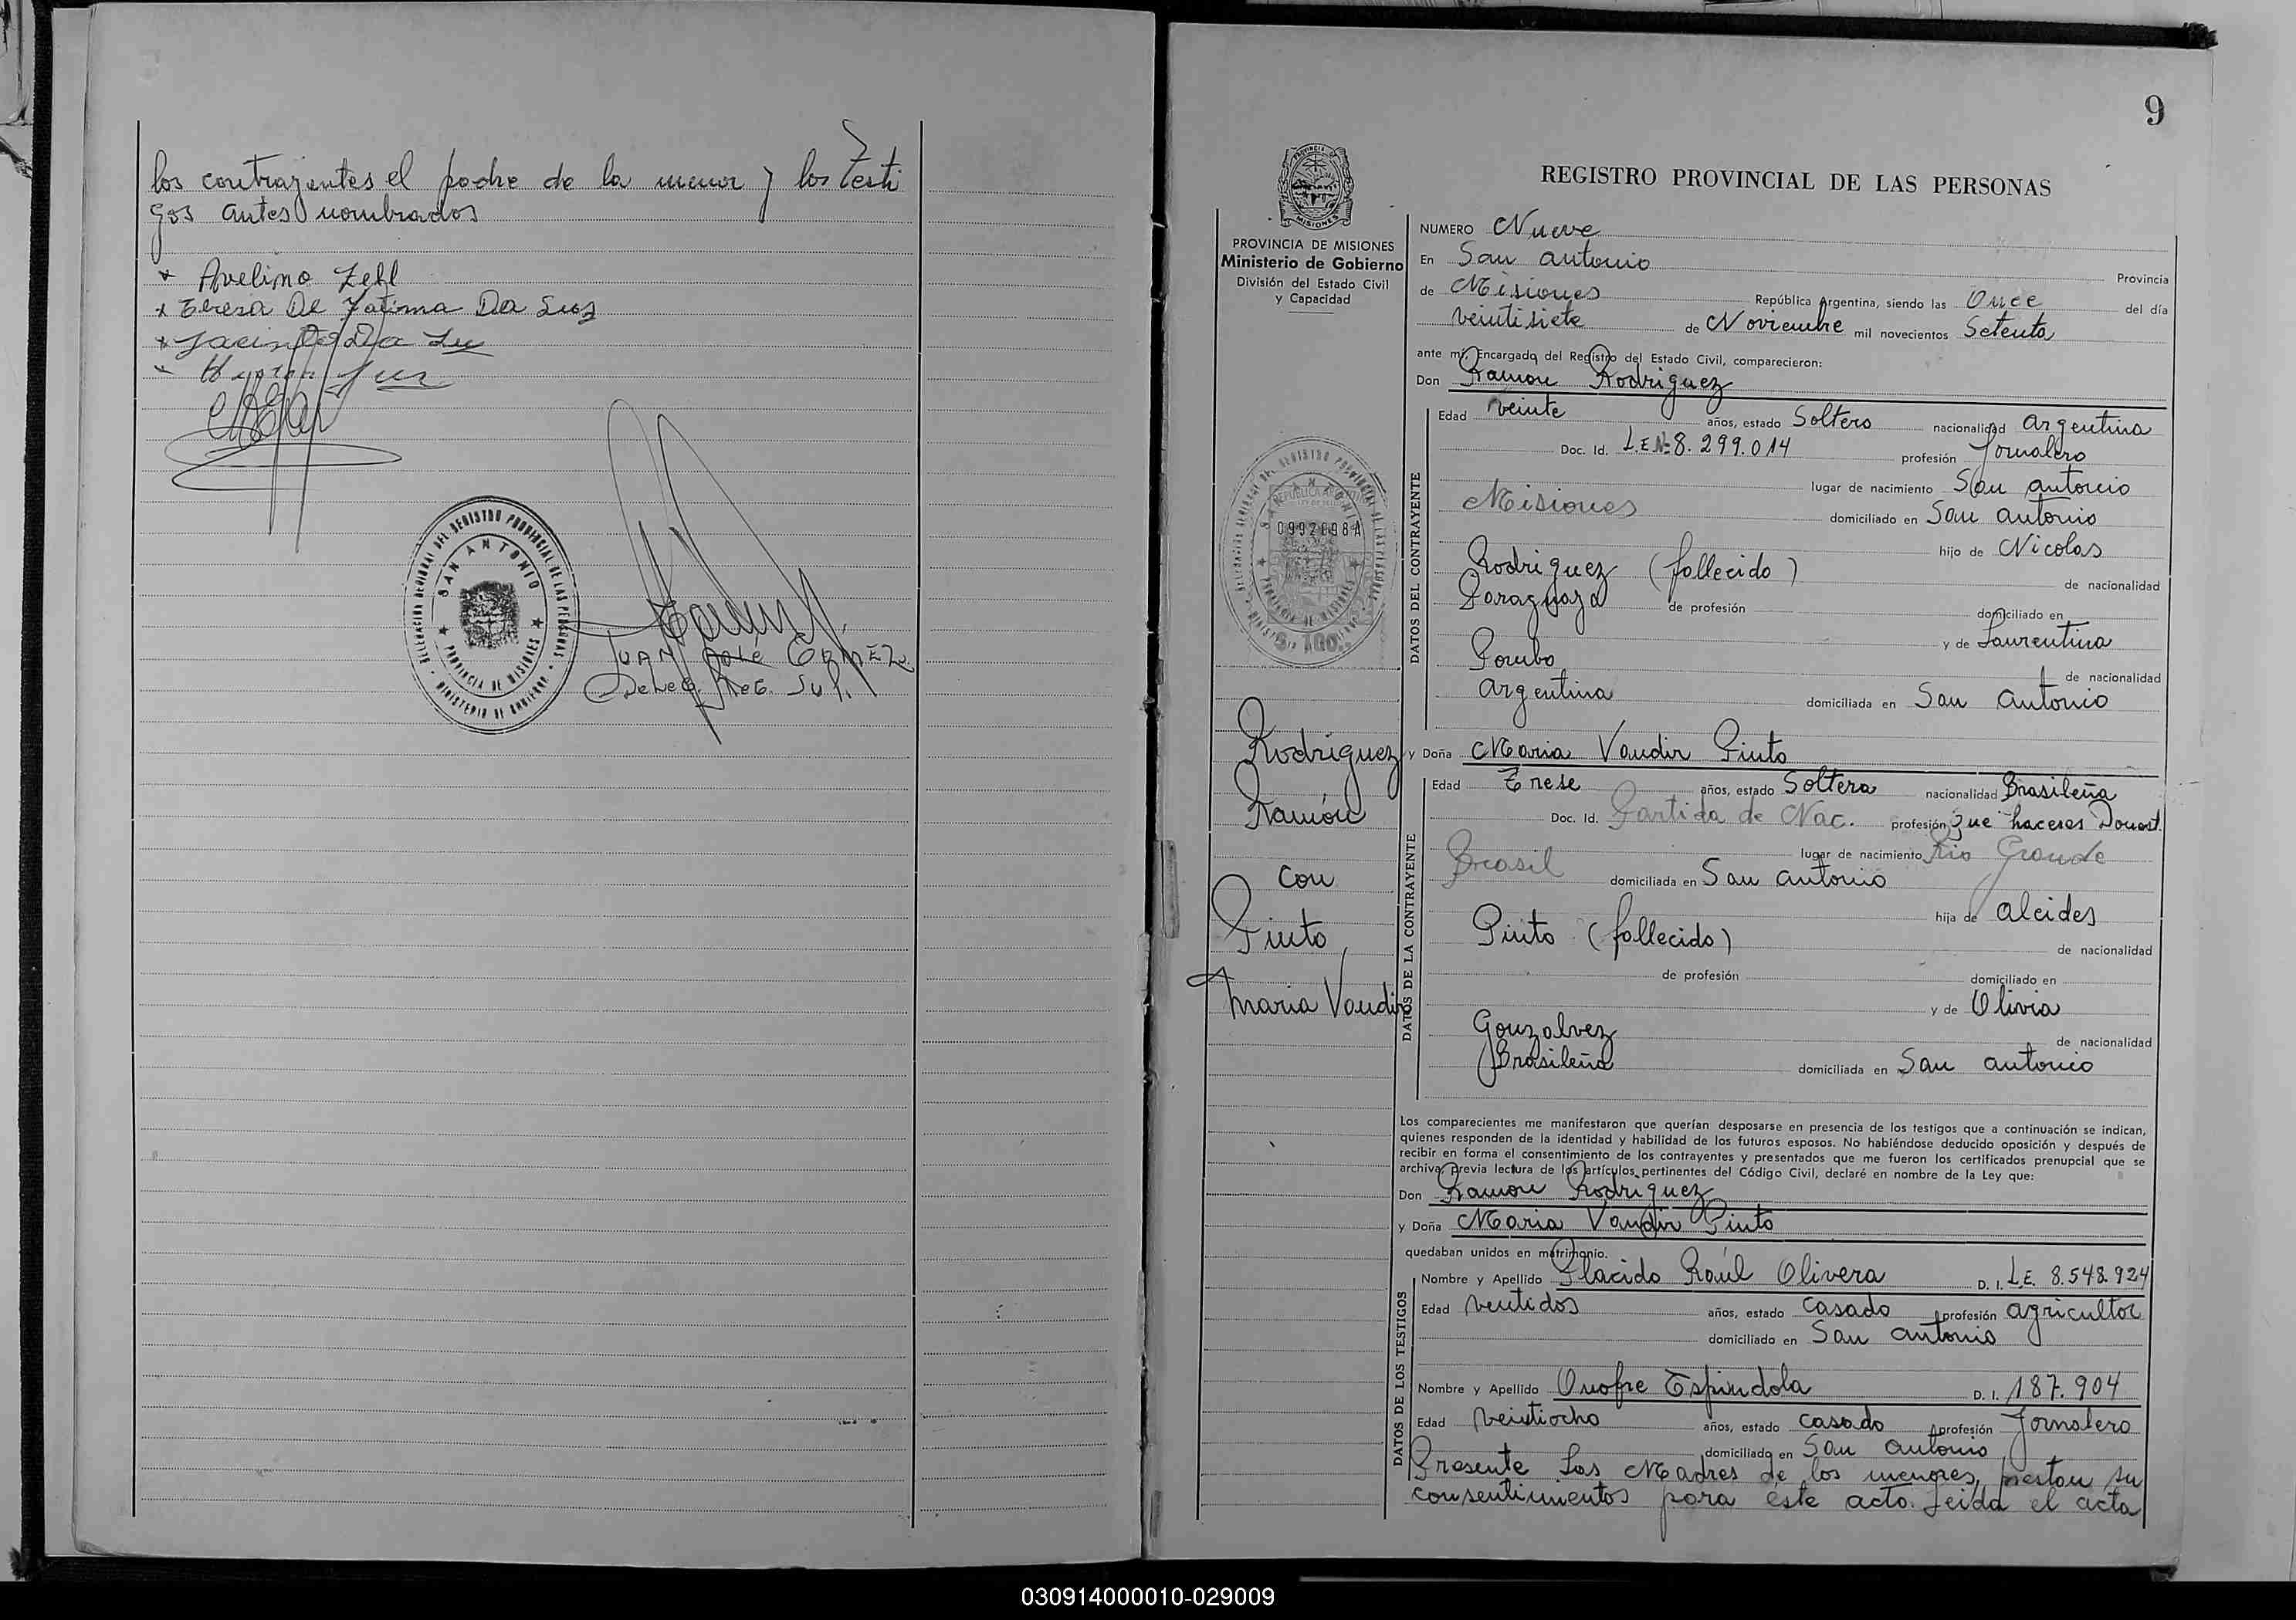 los contrayentes el padre de la menor y los testi
gos antes nombrados
x Avelino Zell
x Teresa De Fatima Da Luz
x Jacinto Da Luz
JUAN José GOMEZ
DeLeG. ReG. SuP.
DELEGACION REGIONAL DEL REGISTRO PROVINCIAL DE LAS PERSONAS
SAN ANTONIO
PROVINCIA DE MISIONES
MINISTERIO DE GOBIERNO
9
REGISTRO PROVINCIAL DE LAS PERSONAS
MISIONES
PROVINCIA DE MISIONES
Ministerio de Gobierno
División del Estado Civil
y Capacidad
NUMERO Nueve
En San Antonio Provincia
de Misiones República Argentina, siendo las Once del día
veintisiete de Noviembre mil novecientos Setenta
ante mí, Encargado del Registro del Estado Civil, comparecieron:
Don Ramon Rodriguez
DATOS DEL CONTRAYENTE
Edad veinte años, estado Soltero nacionalidad argentina
Doc. Id. L.E.Nº 8.299.014 profesión Jornalero
lugar de nacimiento San antonio
Misiones domiciliado en San antonio
hijo de Nicolas
Rodriguez (fallecido) de nacionalidad
Paraguaya de profesión domiciliado en
y de Laurentina
Pombo de nacionalidad
argentina domiciliada en San antonio
Rodriguez
Ramón
con
Pinto
Maria Vandir
y Doña Maria Vandir Pinto
DATOS DE LA CONTRAYENTE
Edad Trese años, estado Soltera nacionalidad Brasileña
Doc. Id. Partida de Nac. profesión Que haceres Domest.
lugar de nacimiento Rio Grande
Brasil domiciliada en San antonio
hija de alcides
Pinto (fallecido) de nacionalidad
de profesión domiciliado en
y de Olivia
Gonzalvez de nacionalidad
Brasileña domiciliada en San antonio
Los comparecientes me manifestaron que querían desposarse en presencia de los testigos que a continuación se indican,
quienes responden de la identidad y habilidad de los futuros esposos. No habiéndose deducido oposición y después de
recibir en forma el consentimiento de los contrayentes y presentados que me fueron los certificados prenupcial que se
archiva, previa lectura de los artículos pertinentes del Código Civil, declaré en nombre de la Ley que:
Don Ramon Rodriguez
y Doña Maria Vandir Pinto
quedaban unidos en matrimonio.
DATOS DE LOS TESTIGOS
Nombre y Apellido Placido Raúl Olivera D. I. L.E. 8.548.924
Edad ventidos años, estado casado profesión agricultor
domiciliado en San antonio
Nombre y Apellido Onofre Espindola D. I. 187.904
Edad veintiocho años, estado casado profesión Jornalero
domiciliado en San antonio
Presente Las Madres de los menores, prestan su
consentimientos para éste acto. Leida el acta
030914000010-029009